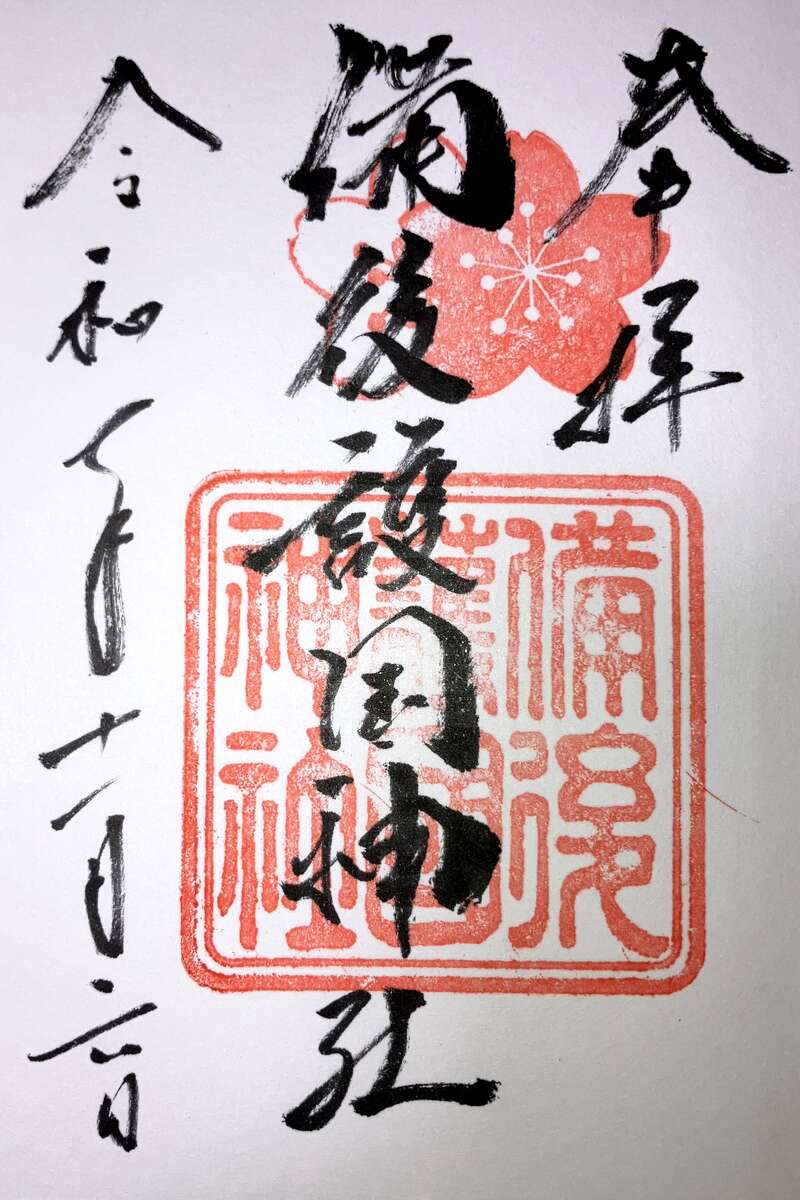 奉拝
備後護国神社
令和 年十一月六日
備後
護國
神社